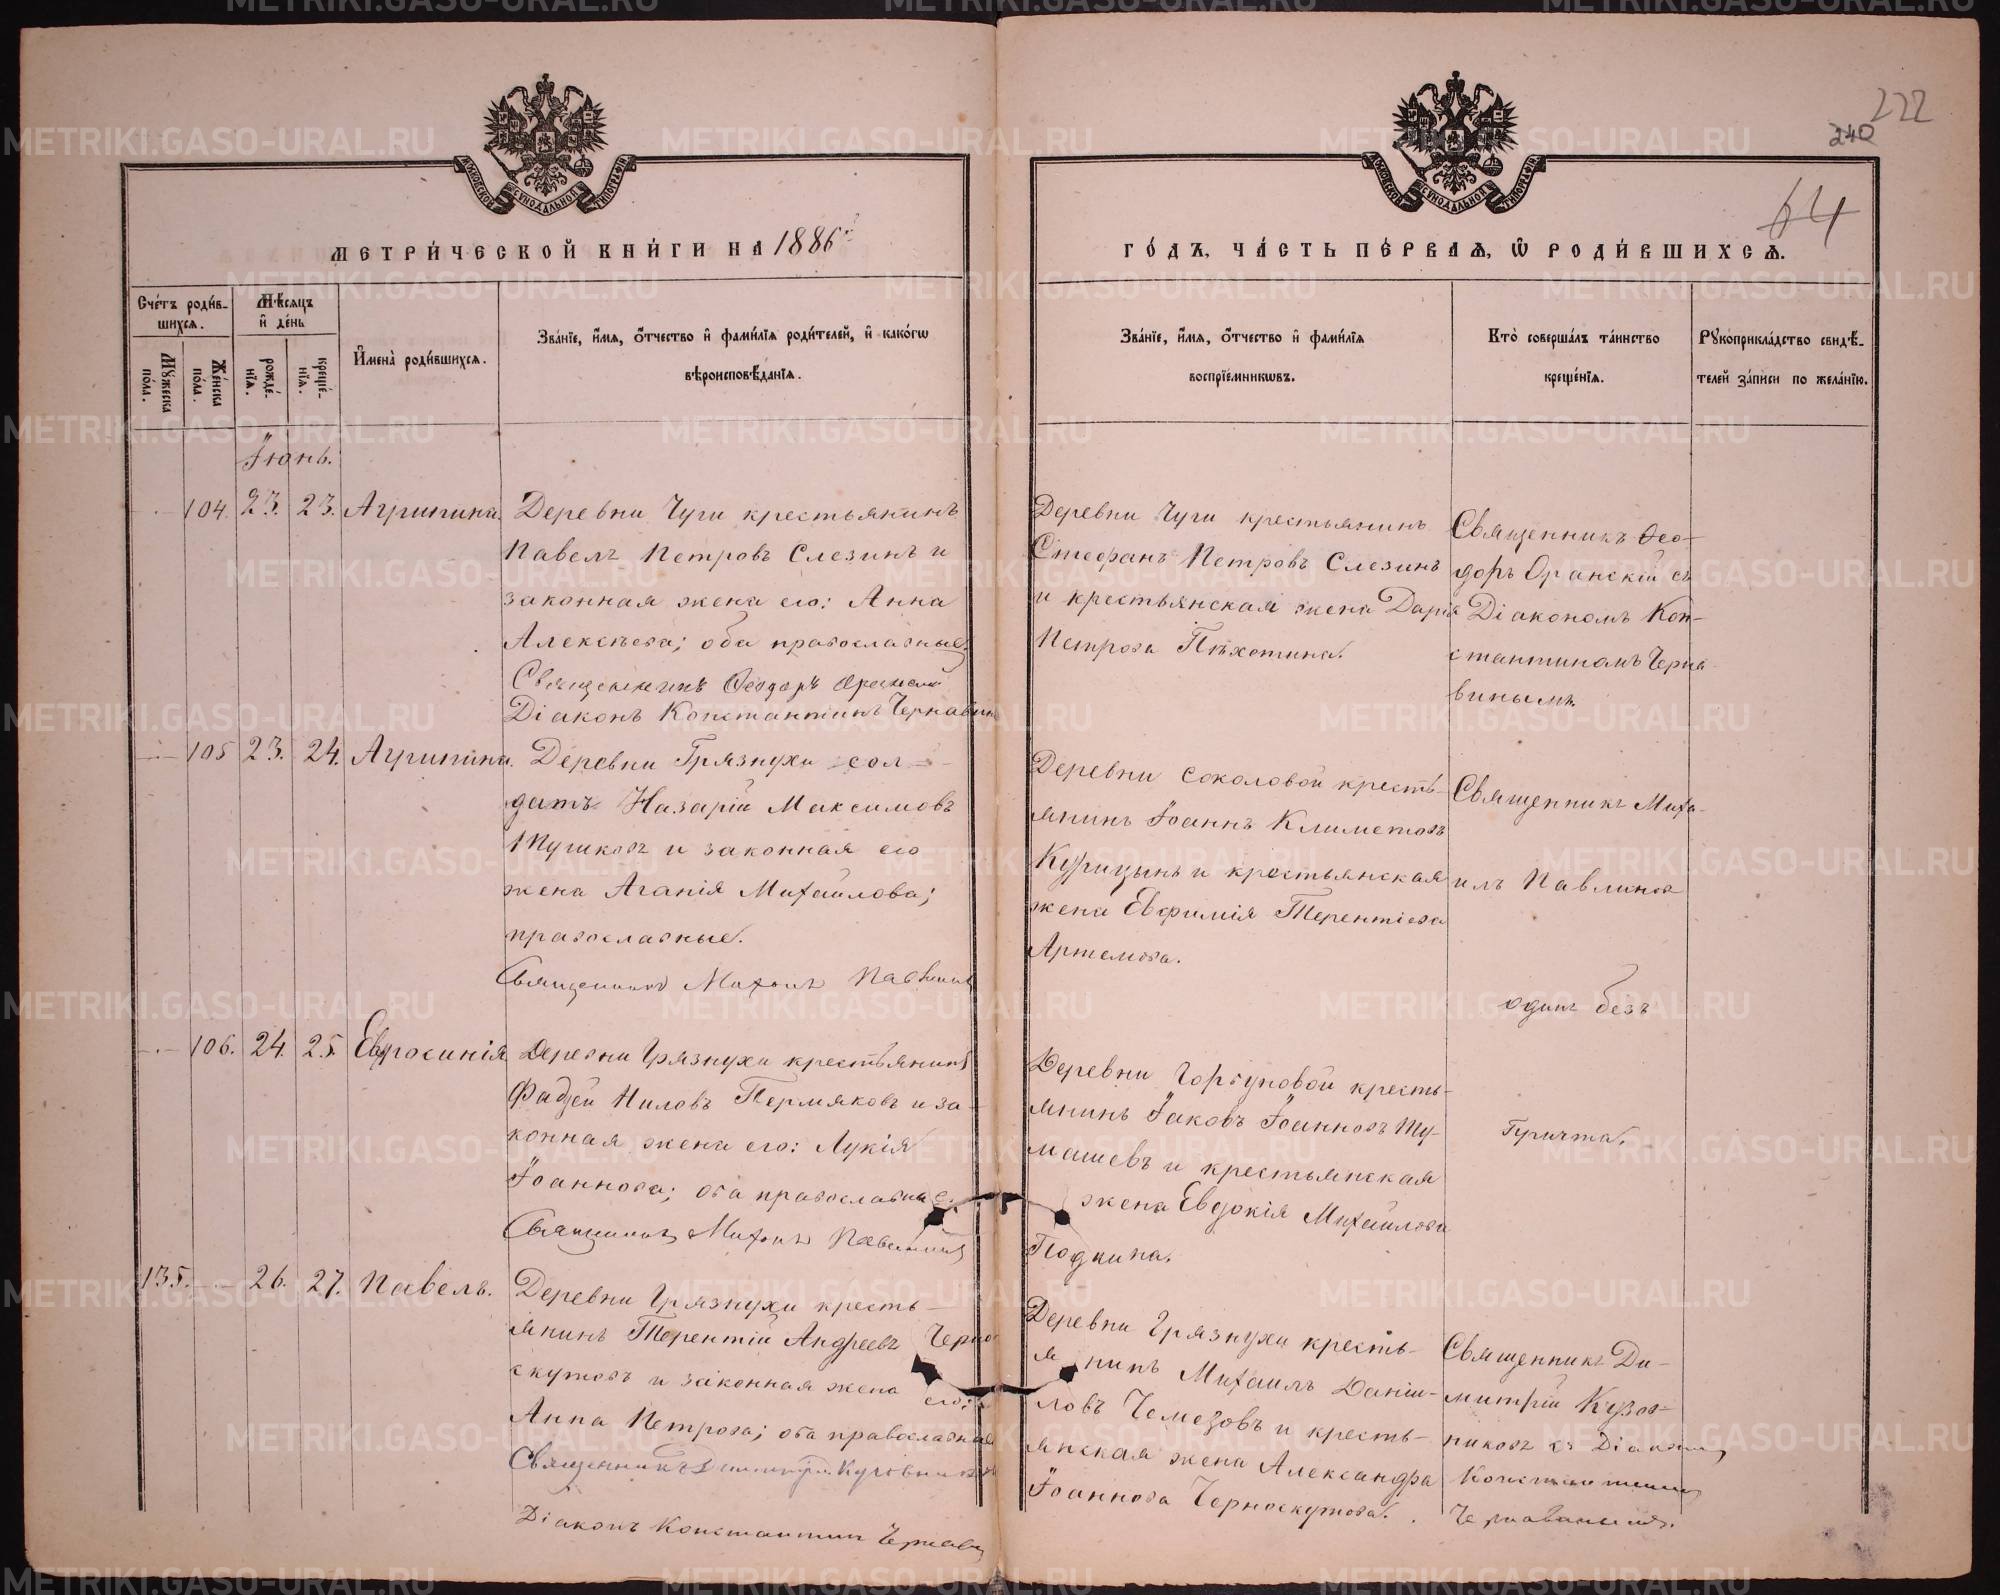 222
240
64
МОСКОВСКОЙ СѴНОДАЛЬНОЙ ТИПОГРАФІИ
МОСКОВСКОЙ СѴНОДАЛЬНОЙ ТИПОГРАФІИ
МЕТРИ́ЧЕСКОЙ КНИ́ГИ НА 1886й
ГО́ДЪ, ЧА́СТЬ ПЕ́РВАѦ, Ѡ РОДИ́ВШИХСѦ.
Сче́тъ роди́в-
шихсѧ.
Мꙋжеска по́ла.
Же́нска по́ла.
Мѣ́сѧцъ
и҆ де́нь
рожде́-
нїѧ.
креще́-
нїѧ.
И҆мена̀ роди́вшихсѧ.
Зва́нїе, и҆́мѧ, ѻ҆́тчество и҆ фами́лїѧ роди́телей, и҆ како́гѡ
вѣроисповѣ́данїѧ.
Зва́нїе, и҆́мѧ, ѻ҆́тчество и҆ фами́лїѧ
воспрїе́мникѡвъ.
Кто̀ соверша́лъ та́инство
креще́нїѧ.
Рꙋкоприкла́дство свидѣ́-
телей за́писи по жела́нїю.
Іюнь.
104. 23. 23. Агрипина.
Деревни Чуги крестьянинъ
Павелъ Петровъ Слезинъ и
законная жена его: Анна
Алексѣева; оба православные.
Священникъ Ѳеодоръ Оранскій
Діаконъ Константинъ Чернавинъ
Деревни Чуги крестьянинъ
Стефанъ Петровъ Слезинъ
и крестьянская жена Дарія
Петрова Пѣхотина.
Священникъ Ѳео-
доръ Оранскій съ
Діакономъ Кон-
стантиномъ Черна
винымъ.
105 23. 24. Агрипина.
Деревни Грязнухи сол-
датъ Назарій Максимовъ
Тушковъ и законная его
жена Агапія Михайлова;
православные.
Священникъ Михаилъ Павлиновъ
Деревни Соколовой кресть-
янинъ Іоаннъ Климетовъ
Курицынъ и крестьянская
жена Евфимія Терентіева
Артемова.
Священникъ Миха-
илъ Павлиновъ
одинъ безъ
Причта.
106. 24. 25. Евфросинія
Деревни Грязнухи крестьянинъ
Фадей Ниловъ Пермяковъ и за-
конная жена его: Лукія
Іоаннова; оба православные.
Священникъ Михаилъ Павлиновъ
Деревни Горбуновой кресть-
янинъ Іаковъ Іоанновъ Ту-
машевъ и крестьянская
жена Евдокія Михайлова
Подкина.
135. 26. 27. Павелъ.
Деревни Грязнухи кресть-
янинъ Терентій Андреевъ Черно
скутовъ и законная жена его:
Анна Петрова; оба православные
Священникъ Димитрій Кузовниковъ
Діаконъ Константинъ Чернавинъ
Деревни Грязнухи кресть-
янинъ Михаилъ Даніи-
ловъ Чемезовъ и кресть-
янская жена Александра
Іоаннова Черноскутова.
Священникъ Ди-
митрій Кузов-
никовъ съ Діакономъ
Константиномъ
Чернавинымъ.